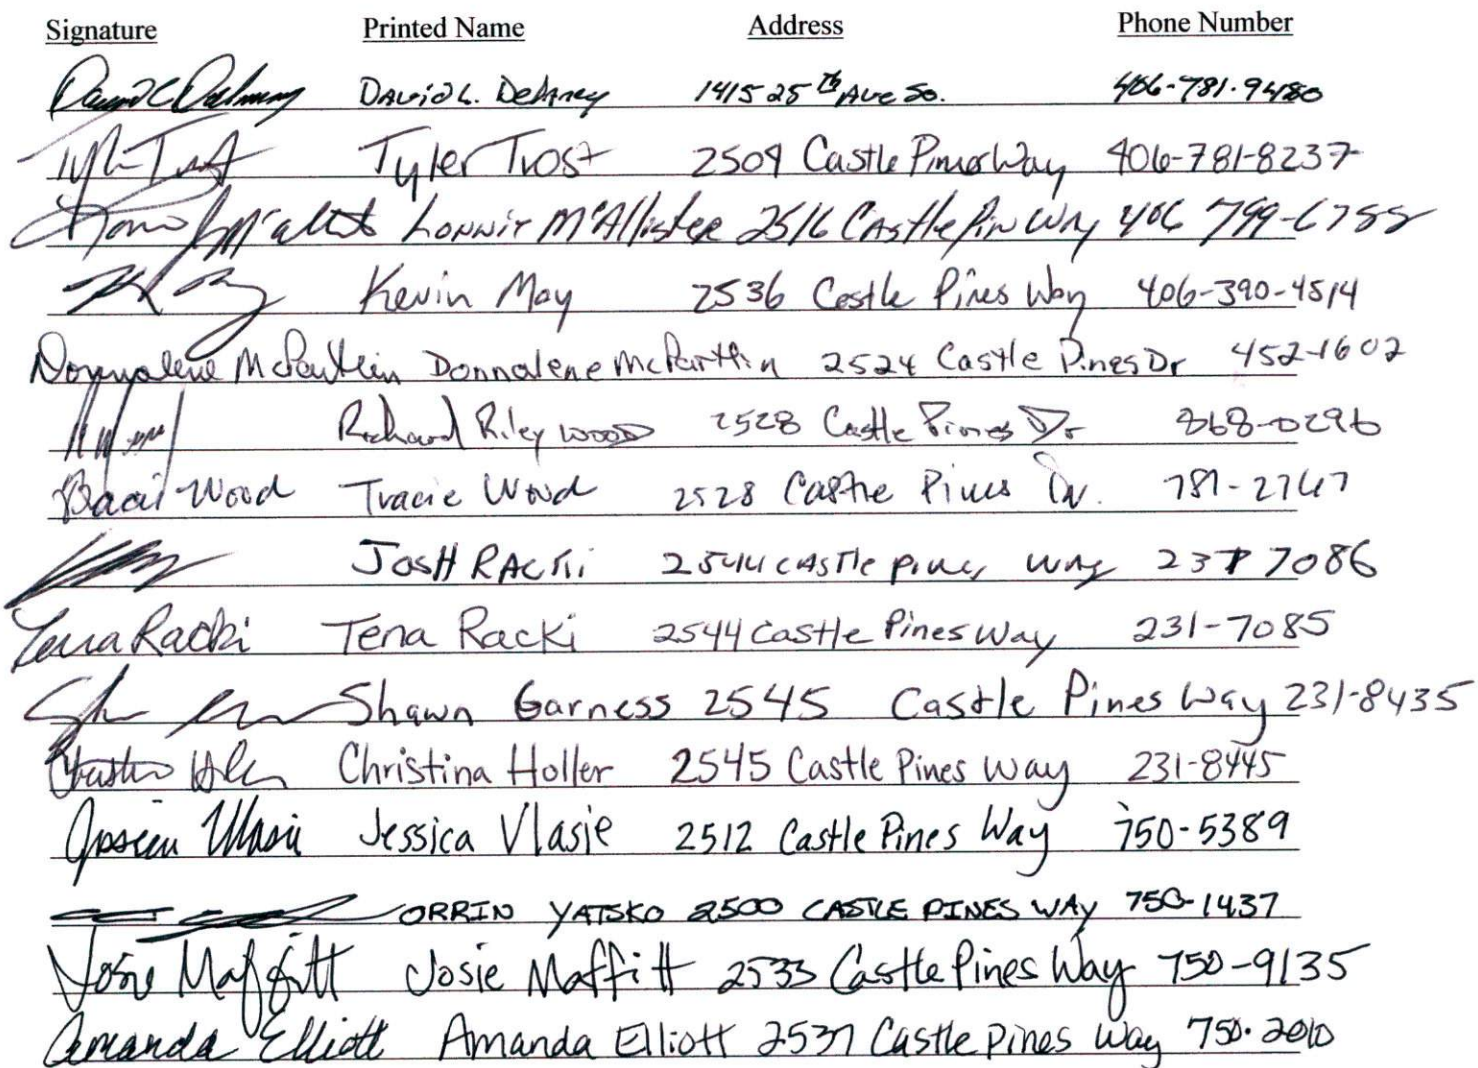 Signature Printed Name Address Phone Number
DAviD L. DeLAney 1415 25th AVe So. 406-781-9480
Tyler Trost 2509 Castle Pines Way 406-781-8237
LoNNie McAllister 2516 CAstle Pin Way 406 799-6788
Kevin May 2536 Castle Pines Way 406-390-4514
Donnalene McPartlin Donnalene McPartlin 2524 Castle Pines Dr 452-1602
Richard Riley wood 2528 Castle Pines Dr 868-0296
Tracie Wood Tracie Wood 2528 Castle Pines Dr. 781-2767
JosH RAcki 2544 cAsTle pines way 231 7086
Tena Racki Tena Racki 2544 Castle Pines Way 231-7085
Shawn Garness 2545 Castle Pines Way 231-8435
Christina Holler 2545 Castle Pines Way 231-8445
Jessica Vlasie Jessica Vlasie 2512 Castle Pines Way 750-5389
ORRIN YATSKO 2500 CASTLE PINES WAY 750-1437
Josie Maffitt Josie Maffitt 2533 Castle Pines Way 750-9135
Amanda Elliott Amanda Elliott 2537 Castle Pines Way 750-2010